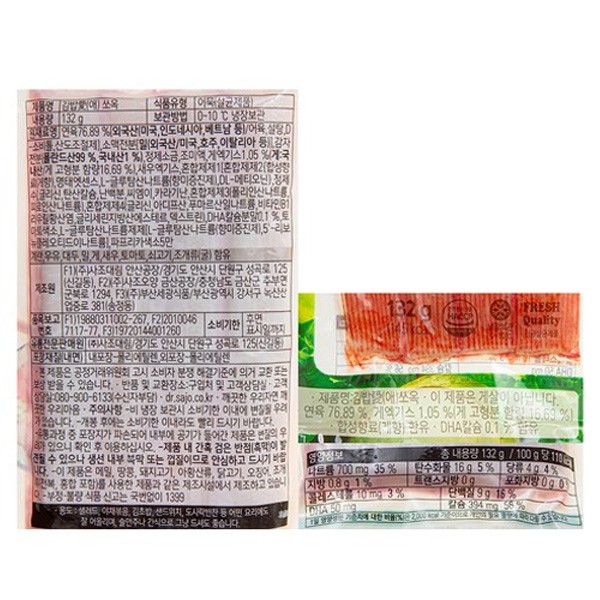 제품명 김밥愛(애) 쏘옥 식품유형 어묵(살균제품)
내용량 132 g 보관방법 0~10 ℃ 냉장보관
원재료명 연육76.89 %[외국산(미국,인도네시아,베트남 등)/어육,설탕,D
-소비톨,산도조절제], 소맥전분[밀(외국산/미국,호주,이탈리아 등)], 감자
전분(폴란드산99 %,국내산1 %), 정제소금, 조미액, 게엑기스1.05 %[게:국
내산(게 고형분 함량16.69 %)], 새우엑기스, 혼합제제1[혼합제제2(합성향
료(게향), 명태엣센스, L-글루탐산나트륨(향미증진제), DL-메티오닌), 정제
수, 글리신, 탄산칼슘, 난백분, 씨엠이, 카라기난, 혼합제제3(폴리인산나트륨,
나트륨), 혼합제제4(글리신, 아디프산, 푸마르산일나트륨), 비타민B1
라우릴황산염, 글리세린지방산에스테르, 덱스트린), DHA칼슘분말0.1 %, 토
마토색소, L-글루탐산나트륨제제[L-글루탐산나트륨(향미증진제), 5'-리보
뉴클레오티드이나트륨], 파프리카색소5만
계란, 우유, 대두, 밀, 게, 새우, 토마토, 쇠고기, 조개류(굴) 함유
제조원 F1)(주)사조대림 안산공장/경기도 안산시 단원구 성곡로 125
(신길동), F2)(주)사조오양 금산공장/충청남도 금산군 추부면
군북로 1294, F3)(주)부산세광식품/부산광역시 강서구 녹산산
업중로 381(송정동)
품목보고 F1)19880311002-267, F2)2010046 소비기한 후면
번호 1117-77, F3)19720144001260 표시일까지
유통전문판매원 (주)사조대림/경기도 안산시 단원구 성곡로 125(신길동)
포장재질(내면) 내포장-폴리에틸렌, 외포장-폴리에틸렌
· 본 제품은 공정거래위원회 고시 소비자 분쟁 해결기준에 의거 교환 또는
보상 받을 수 있습니다. · 반품 및 교환장소:구입처 및 고객상담실 · 고객
상담실:080-900-6133(수신자부담) dr.sajo.co.kr · 깨끗한 우리자연 깨
끗한 우리마음 · 주의사항 -비 냉장 보관시 소비기한 이내에 변질될 우려
가 있습니다. -개봉 후에는 소비기한 이내라도 빨리 드시기 바랍니다.
-유통과정 중 포장지가 파손되어 내부에 공기가 들어간 제품은 변질의 우
려가 있으니 확인 후 이용하십시오. -제품 내 간혹 검은 반점(흑막)이 발
견될 수 있으나 생선 내부 뼈막 또는 껍질이므로 안심하고 드시기 바랍니
다. -이 제품은 메밀, 땅콩, 돼지고기, 아황산류, 닭고기, 오징어, 조개
(전복, 홍합 포함)를 사용한 제품과 같은 제조시설에서 제조하고 있습니
다. · 부정·불량 식품 신고는 국번없이 1399
· 용도 : 샐러드, 야채볶음, 김초밥, 샌드위치, 도시락반찬 등 어떤 요리에도
잘 어울리며, 술안주나 간식으로 그냥 드셔도 좋습니다.
132 g
HACCP
FRESH
Quality
제품명:김밥愛(애)쏘옥 · 이 제품은 게살이 아닙니다.
연육 76.89 %, 게엑기스 1.05 %(게 고형분 함량 16.69 %)
합성향료(게향) 함유 · DHA칼슘 0.1 % 함유
영양정보 총 내용량 132 g / 100 g 당 110 kcal
나트륨 700 mg 35 % 탄수화물 16 g 5 % 당류 4 g 4 %
지방 0.8 g 1 % 트랜스지방 0 g 포화지방 0 g 0 %
콜레스테롤 10 mg 3 % 단백질 9 g 16 %
DHA 50 mg 칼슘 394 mg 56 %
1일 영양성분 기준치에 대한 비율(%)은 2,000 kcal 기준이므로 개인의 필요 열량에 따라 다를 수 있습니다.